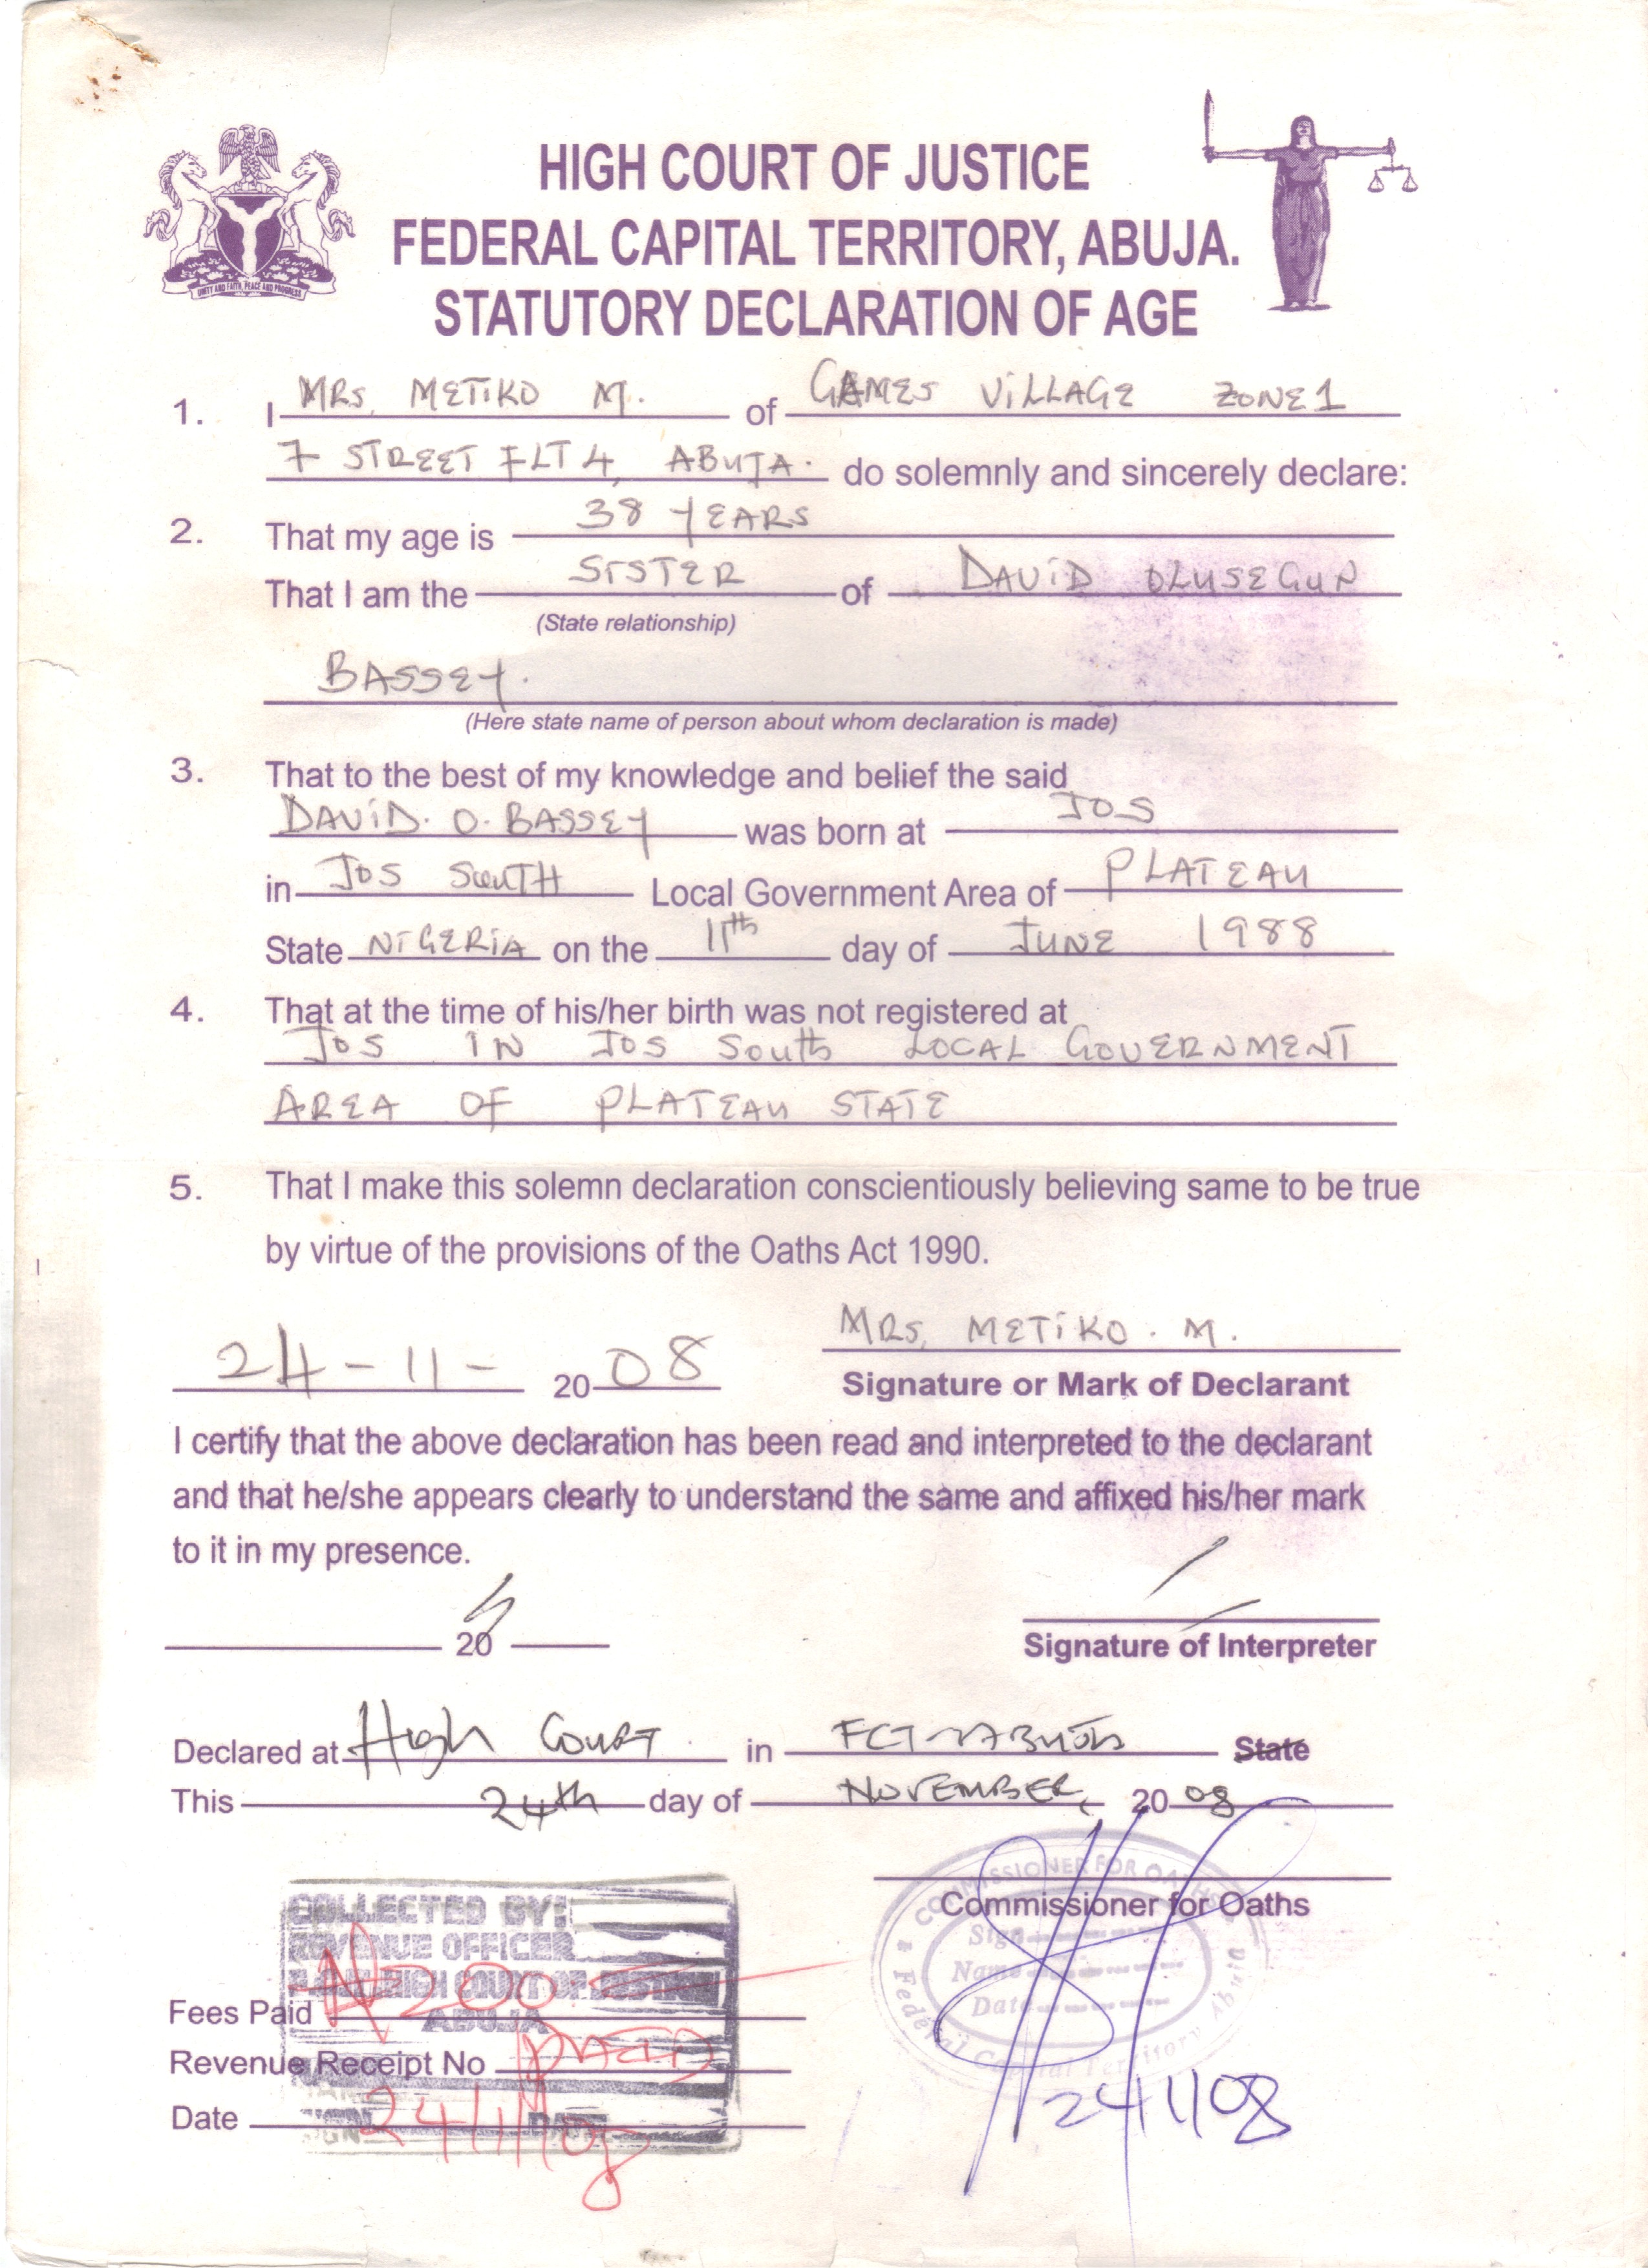 HIGH COURT OF JUSTICE
FEDERAL CAPITAL TERRITORY, ABUJA.
STATUTORY DECLARATION OF AGE
UNITY AND FAITH, PEACE AND PROGRESS
1. I MRS. METIKO M. of GAMES VILLAGE ZONE 1
7 STREET FLT 4, ABUJA. do solemnly and sincerely declare:
2. That my age is 38 YEARS
That I am the SISTER of DAVID OLUSEGUN
(State relationship)
BASSEY.
(Here state name of person about whom declaration is made)
3. That to the best of my knowledge and belief the said
DAVID. O. BASSEY was born at JOS
in JOS SOUTH Local Government Area of PLATEAU
State NIGERIA on the 11th day of JUNE 1988
4. That at the time of his/her birth was not registered at
JOS IN JOS South LOCAL GOVERNMENT
AREA OF PLATEAU STATE
5. That I make this solemn declaration conscientiously believing same to be true
by virtue of the provisions of the Oaths Act 1990.
MRS. METIKO. M.
24-11- 20 08
Signature or Mark of Declarant
I certify that the above declaration has been read and interpreted to the declarant
and that he/she appears clearly to understand the same and affixed his/her mark
to it in my presence.
20
Signature of Interpreter
Declared at High COURT in FCT ABUJA State
This 24th day of NOVEMBER, 20 08
COMMISSIONER FOR OATHS
Commissioner for Oaths
Sign
Name
Date
Federal Capital Territory Abuja
24/11/08
COLLECTED BY:
REVENUE OFFICER
HIGH COURT OF JUSTICE
ABUJA
Fees Paid ₦200
Revenue Receipt No
Date 24/11/08
SIGN DATE